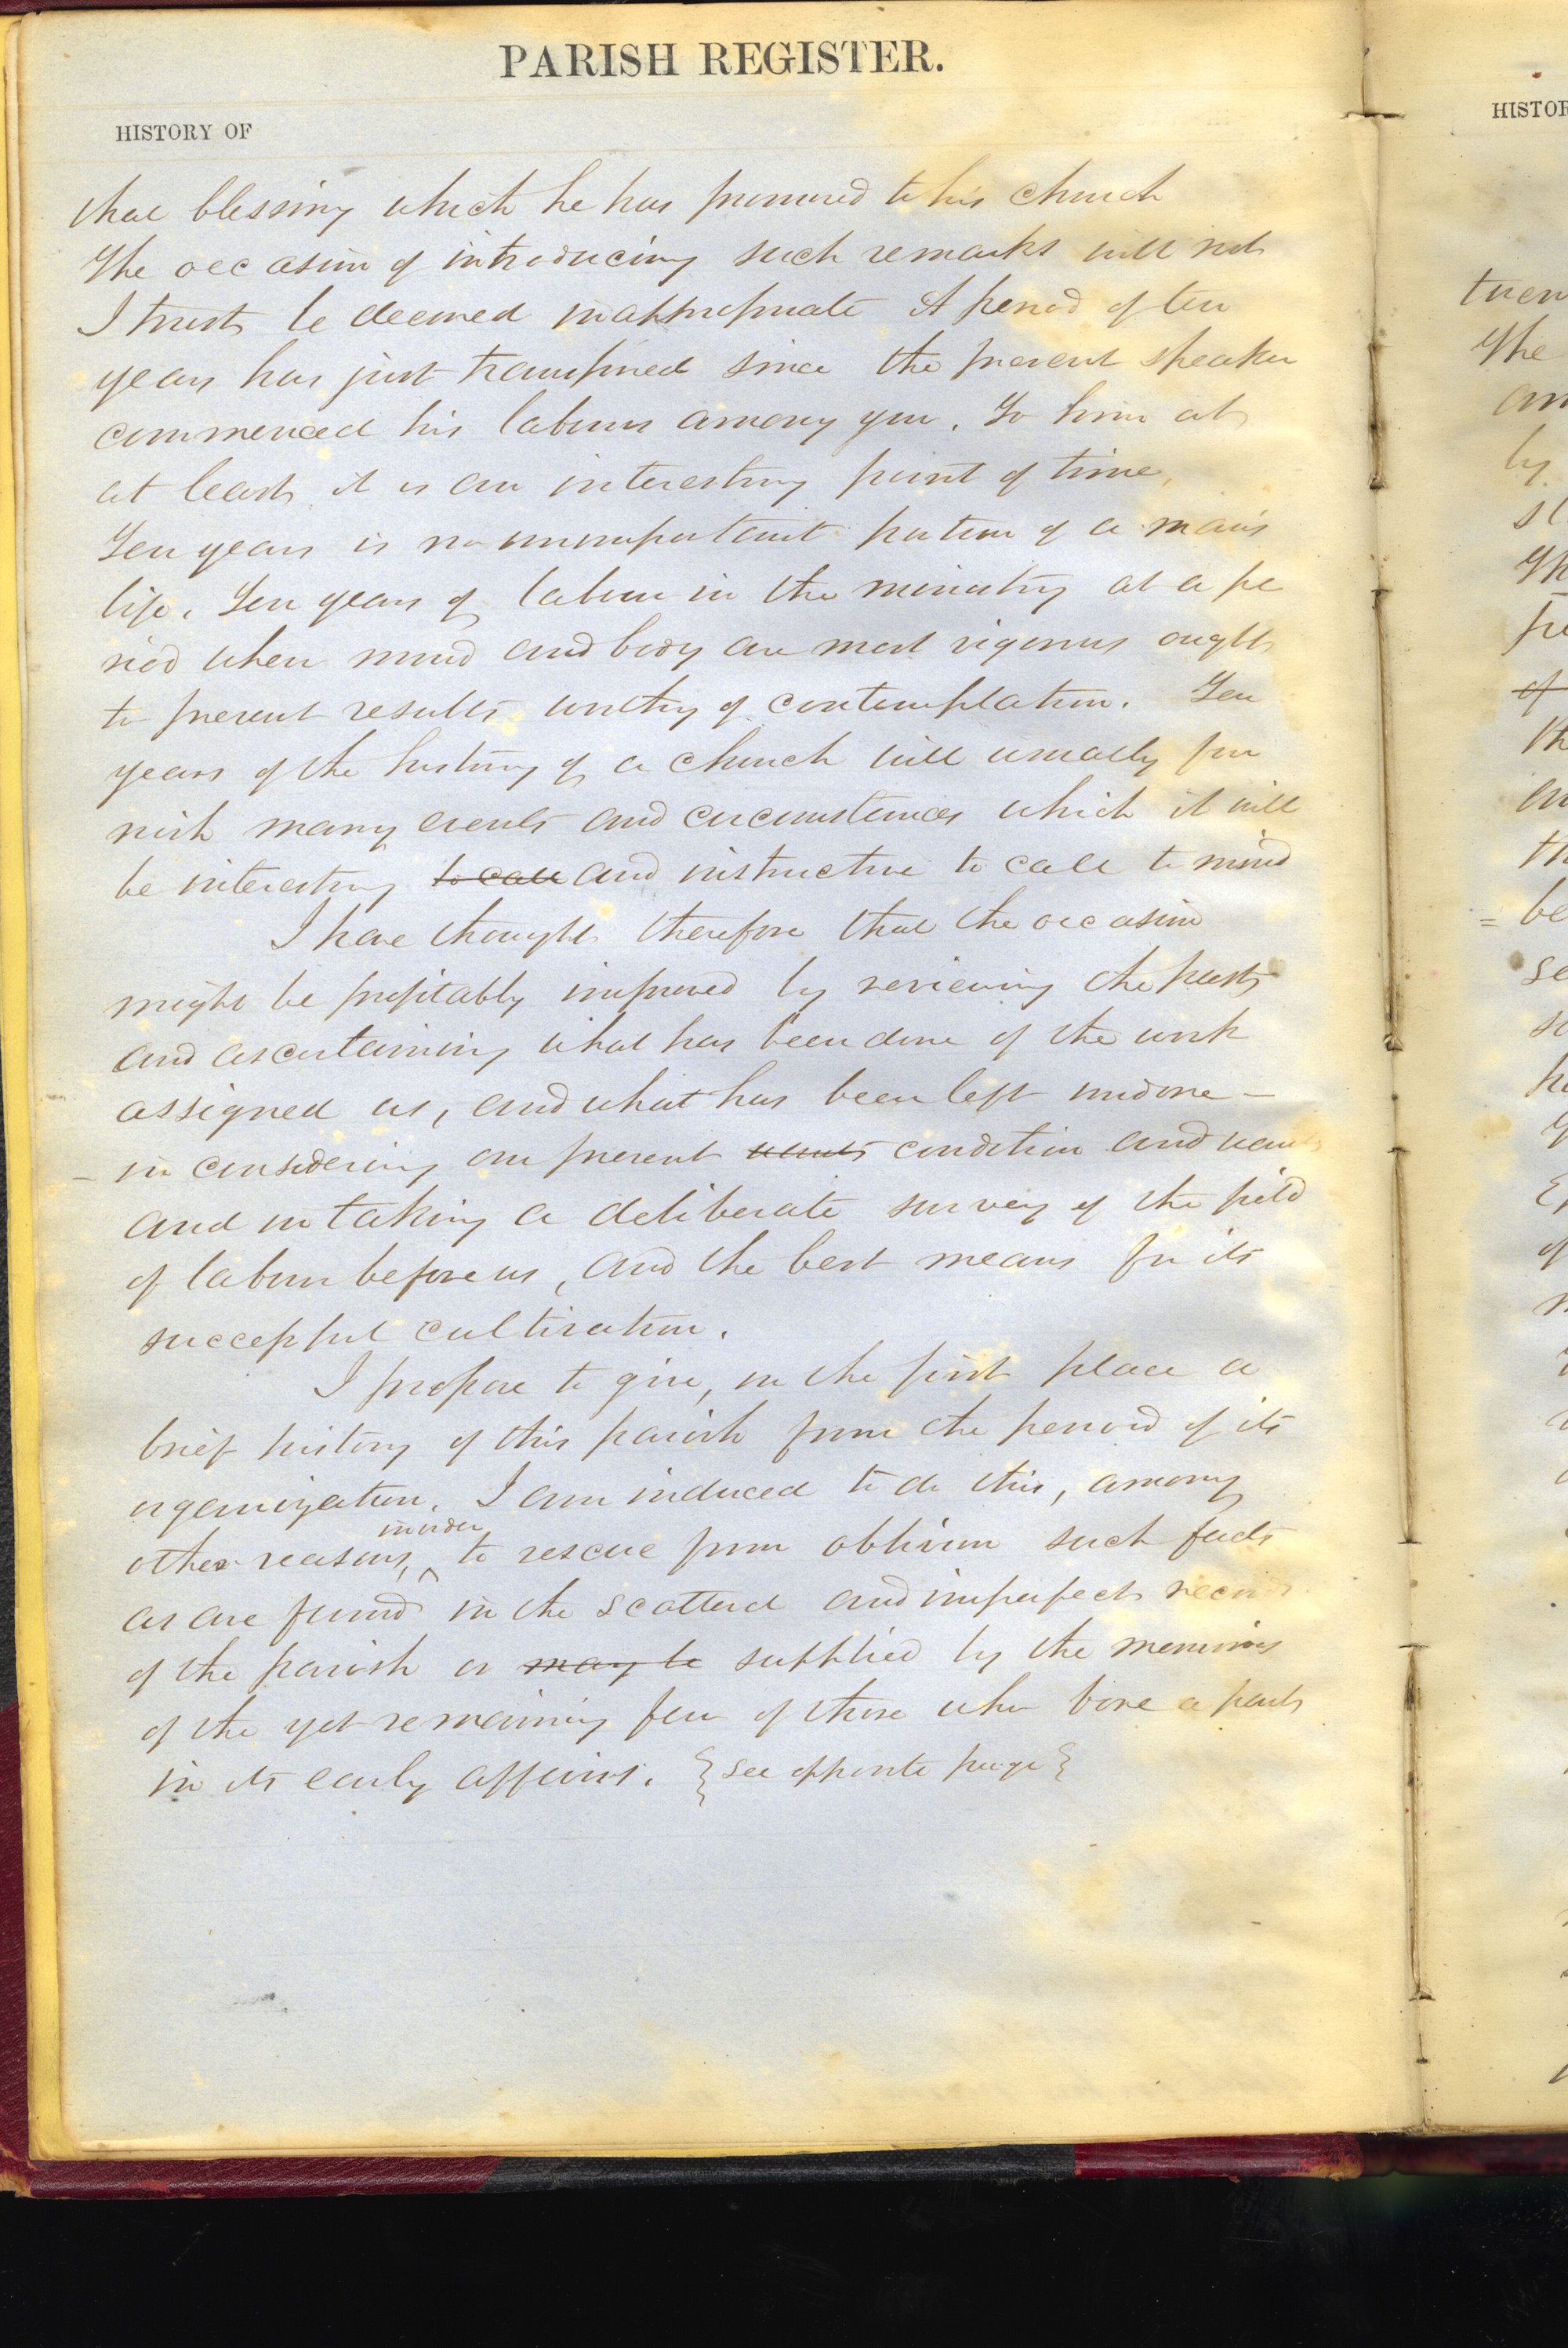 PARISH REGISTER.
HISTORY OF
that blessing which he has promised to his church
The occasion of introducing such remarks will not
I trust be deemed inappropriate A period of ten
years has just transpired since the present speaker
commenced his labours among you. To him at
at least it is an interesting point of time,
Ten years is no unimportant portion of a man's
life. Ten years of labour in the ministry at a pe
riod when mind and body are most vigorous ought
to present results worthy of contemplation. Ten
years of the history of a church will usually fur
nish many events and circumstances which it will
be interesting to call and instructive to call to mind
I have thought therefore that the occasion
might be profitably improved by reviewing the past
and ascertaining what has been done of the work
assigned us, and what has been left undone –
– in considering our present wants condition and wants
and in taking a deliberate survey of the field
of labour before us, and the best means for its
successful cultivation.
I propose to give, in the first place a
brief history of this parish from the period of its
organization. I am induced to do this, among
in order
other reasons, ^ to rescue from oblivion such facts
as are found in the scatterd and imperfect records
of the parish or may be supplied by the memories
of the yet remaining few of those who bore a part
in its early affairs. {see opposite page}
HISTOR
The
by
of
be